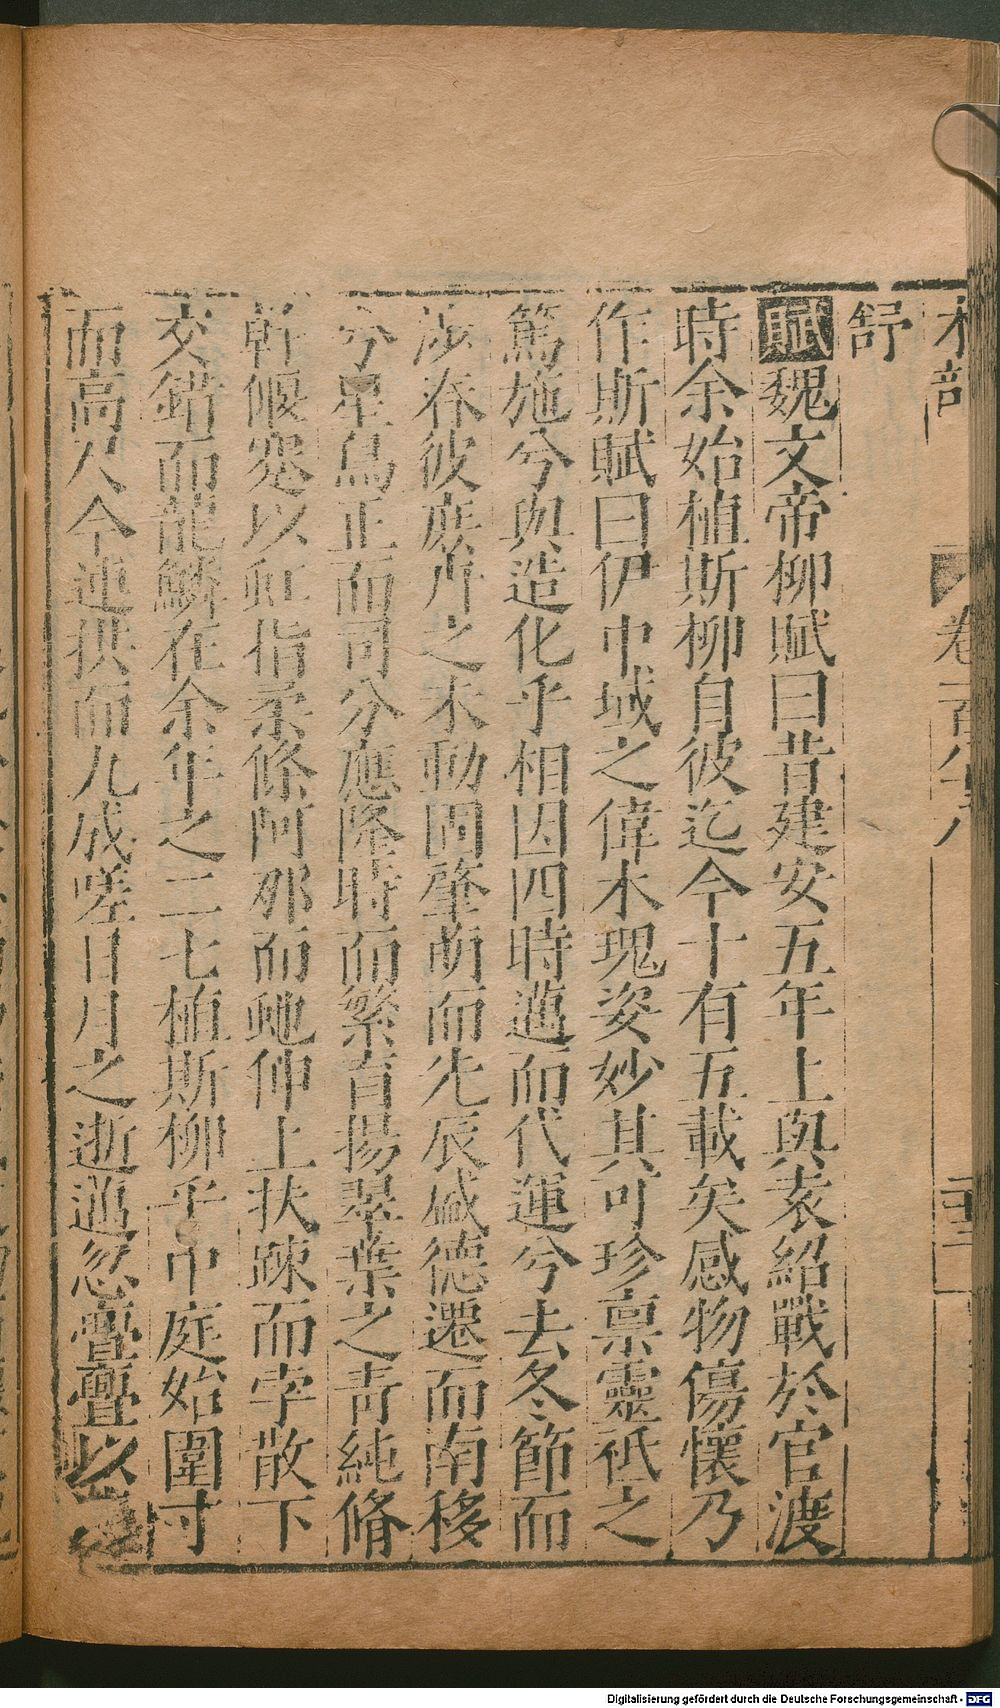 木部
卷一百六十八
舒
賦魏文帝柳賦曰昔建安五年上與袁紹戰於官渡
時余始植斯柳自彼迄今十有五載矣感物傷懷乃
作斯賦曰伊中域之偉木瑰姿妙其可珍禀靈祗之
篤施兮與造化乎相因四時邁而代運兮去冬節而
涉春彼庶卉之未動固肇萌而先辰盛德遷而南移
兮星鳥正而司分應隆時而繁育揚翠葉之青純脩
幹偃蹇以虹指柔條阿那而虵伸上扶疎而孛散下
交錯而龍鱗在余年之二七植斯柳乎中庭始圍寸
而高尺今連拱而九成嗟日月之逝邁忽亹亹以
Digitalisierung gefördert durch die Deutsche Forschungsgemeinschaft - DFG